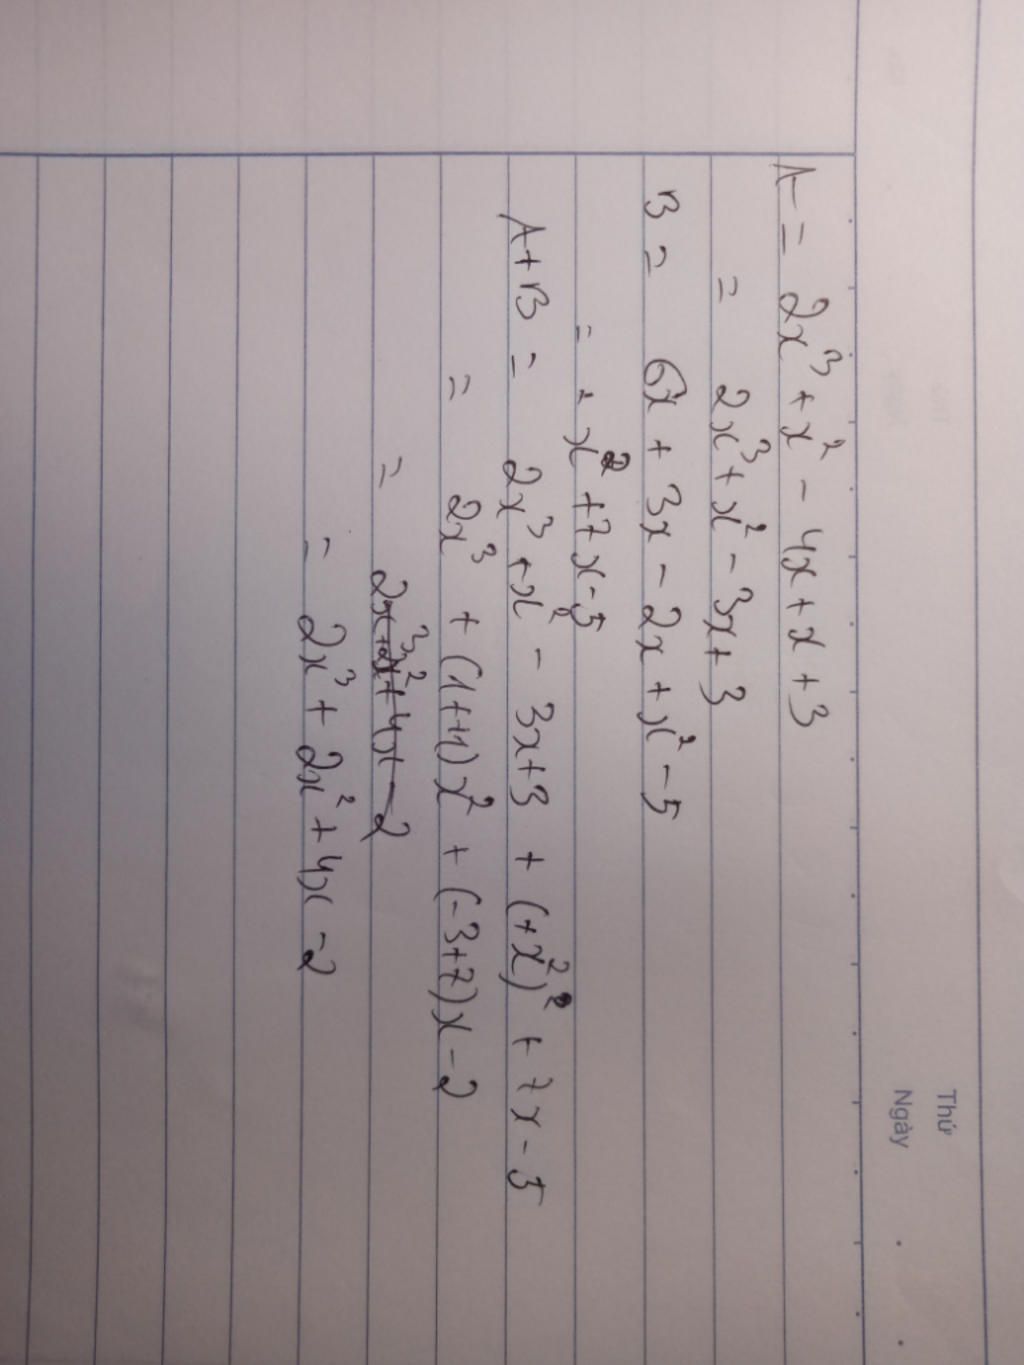 Thứ
Ngày
A = 2x³ + x² - 4x + x + 3
= 2x³ + x² - 3x + 3
B = 6x + 3x - 2x + x² - 5
= + x² + 7x - 5
A + B = 2x³ + x² - 3x + 3 + (+x²) + 7x - 5
= 2x³ + (1+1)x² + (-3+7)x - 2
= 2x³ + 2x² + 4x - 2
= 2x³ + 2x² + 4x - 2